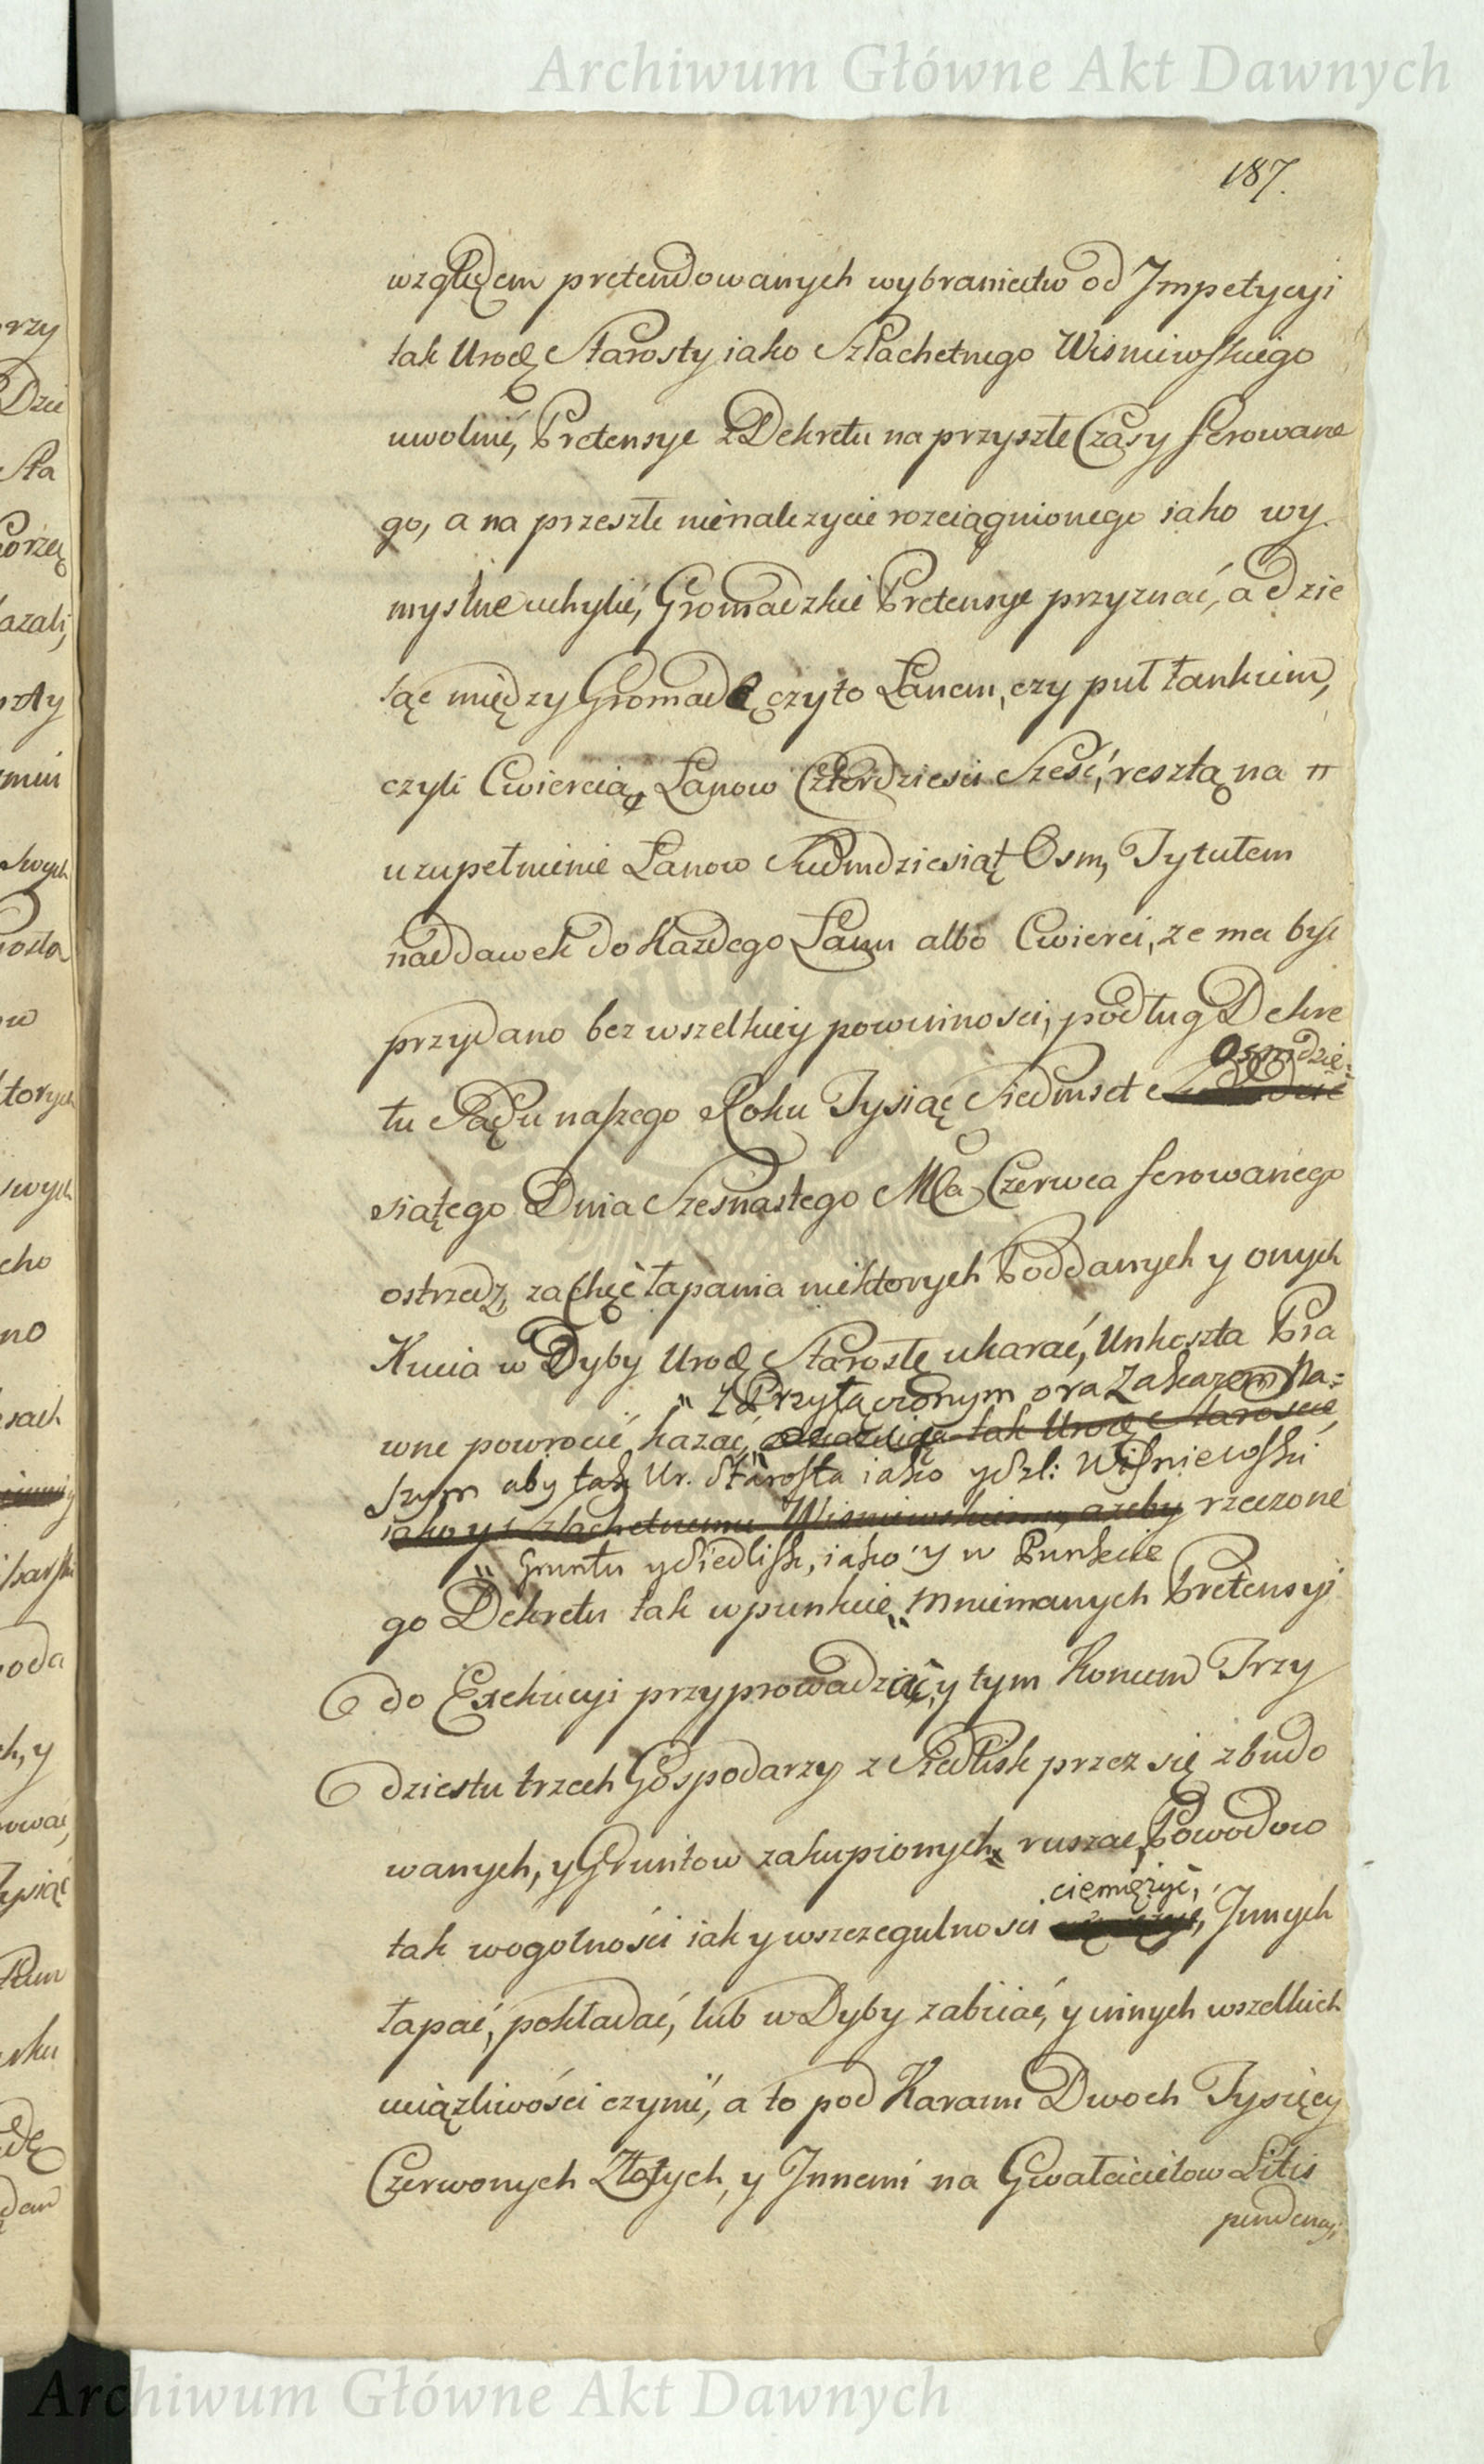 Archiwum Główne Akt Dawnych
187.
względem pretendowanych wybraniectw od Jmpetycyi
tak Urodz Starosty iako Szlachetnego Wisniewskiego
uwolnić, Pretensye z Dekretu na przyszłe Czasy ferowane
go, a na przeszłe nienależycie rozciągnionego iako wy
myslne uchylić, Gromadzkie Pretensye przyznać, a dzie
ląc między Gromadę czyto Łanem, czy puł łankiem,
czyli Cwiercią, Łanow Czterdziesci Sześć, resztą na
uzupełnienie Łanow Siedmdziesiąt Osm, Tytułem
naddawek do Każdego Łanu albo Cwierci, ze ma byc
przydano bez wszelkiey powinnosci, podług Dekre
Osmdzie:
tu Sądu naszego Roku Tysiąc Siedmset
siątego Dnia Szesnastego Mca Czerwca ferowanego
ostrzedz, za chęć łapania niektorych Poddanych y onych
Kucia w Dyby Urodz Starostę ukarać, Unkoszta Pra
z Przyłączonym oraz Zakazem Na:
wne powrocić kazać, zakazuiąc tak Urodz Staroscie,
szym aby tak Ur. Starosta iako y Szl: Wiśniewski
iako y Szlachetnemu Wisniewskiemu, ażeby rzeczone
Gruntu y Siedlisk, iako y w Punkcie
go Dekretu tak w punkcie mniemanych Pretensyi
do Exekucyi przyprowadzać, y tym Koncem Trzy
dziestu trzech Gospodarzy z Siedlisk przez się zbudo
wanych, y Gruntow zakupionych ruszac, Powodow
ciemiężyć,
tak wogolności iak y wszczegulnosci Jnnych
łapać, pokładać, lub w Dyby zabiiać, y innych wszelkich
uciążliwości czynić, a to pod Karami Dwoch Tysięcy
Czerwonych Złotych, y Jnnemi na Gwałcicielow Litis
pendencyi
Archiwum Główne Akt Dawnych